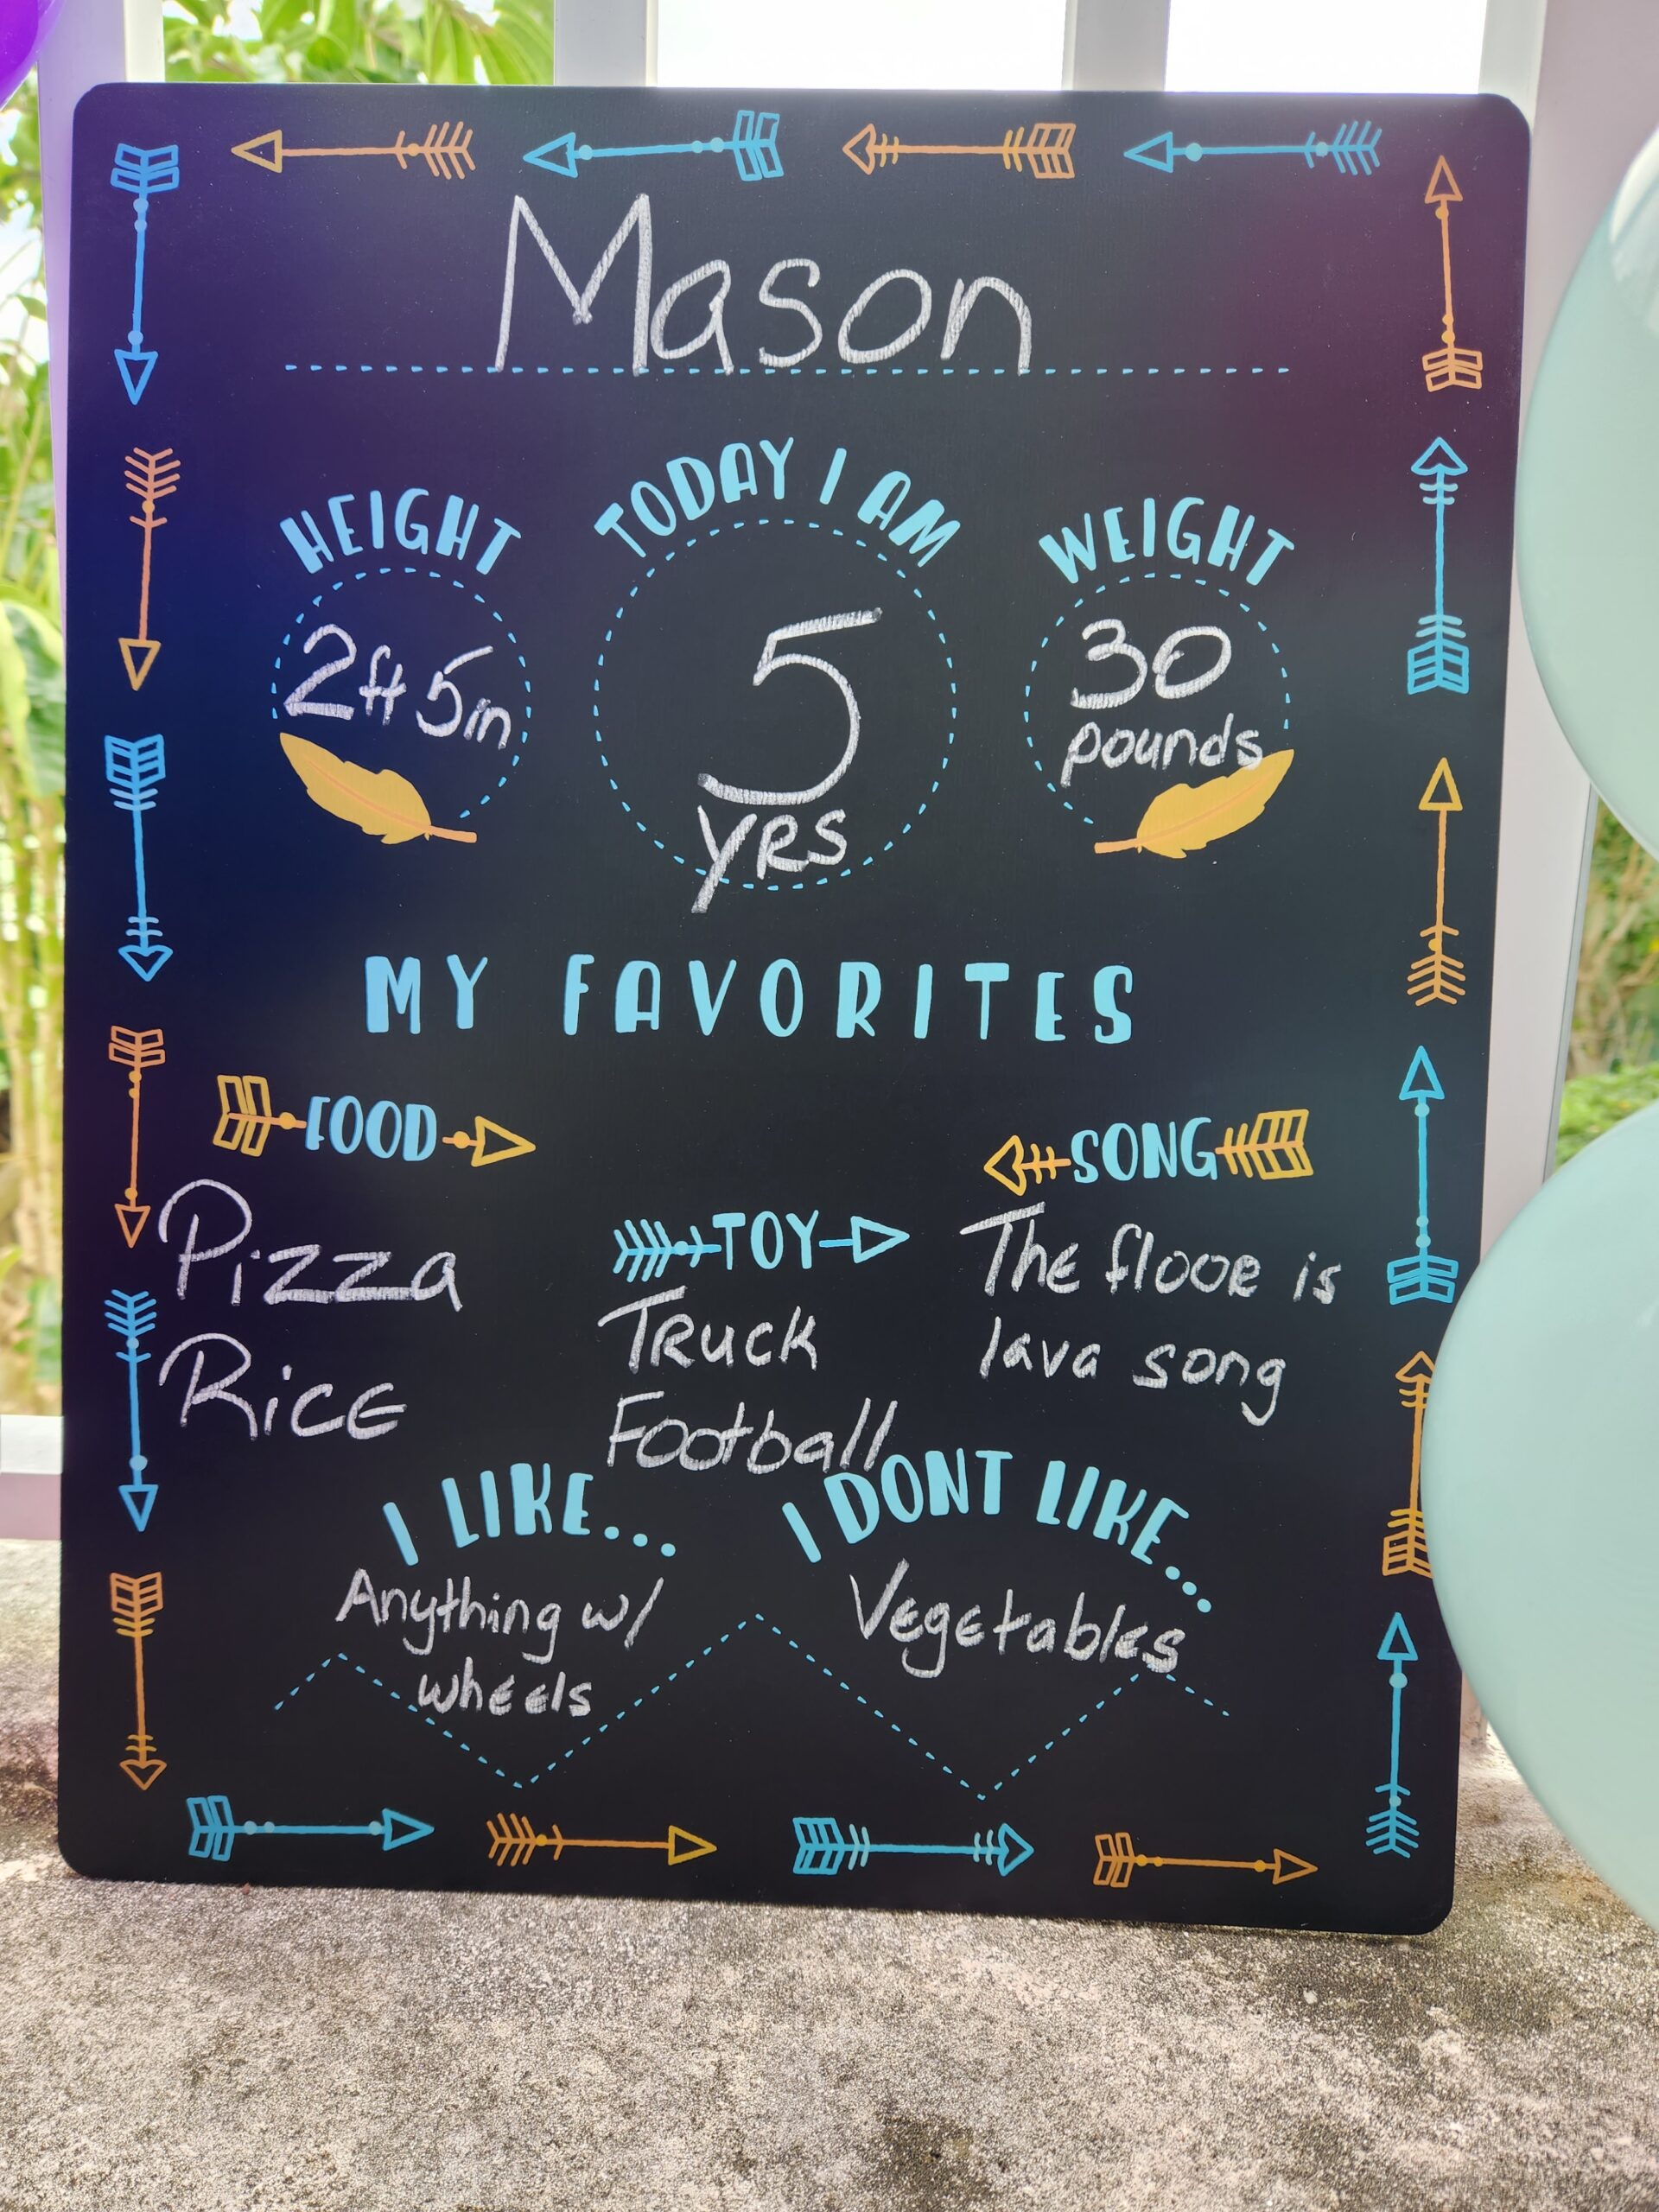 Mason
HEIGHT
2ft 5in
TODAY I AM
5
yrs
WEIGHT
30
pounds
MY FAVORITES
FOOD
Pizza
Rice
TOY
Truck
Football
SONG
The flooe is
lava song
I LIKE...
Anything w/
wheels
I DONT LIKE...
Vegetables